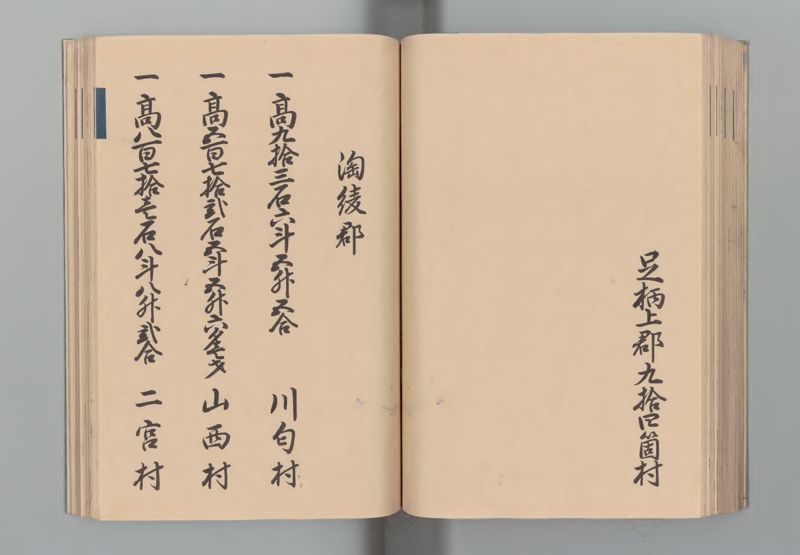 足柄上郡九拾四箇村
淘綾郡
一高九拾三石六斗五升五合 川匂村
一高五百七拾弐石五斗五升六合壱才 山西村
一高八百七拾壱石八斗八升弐合 二宮村